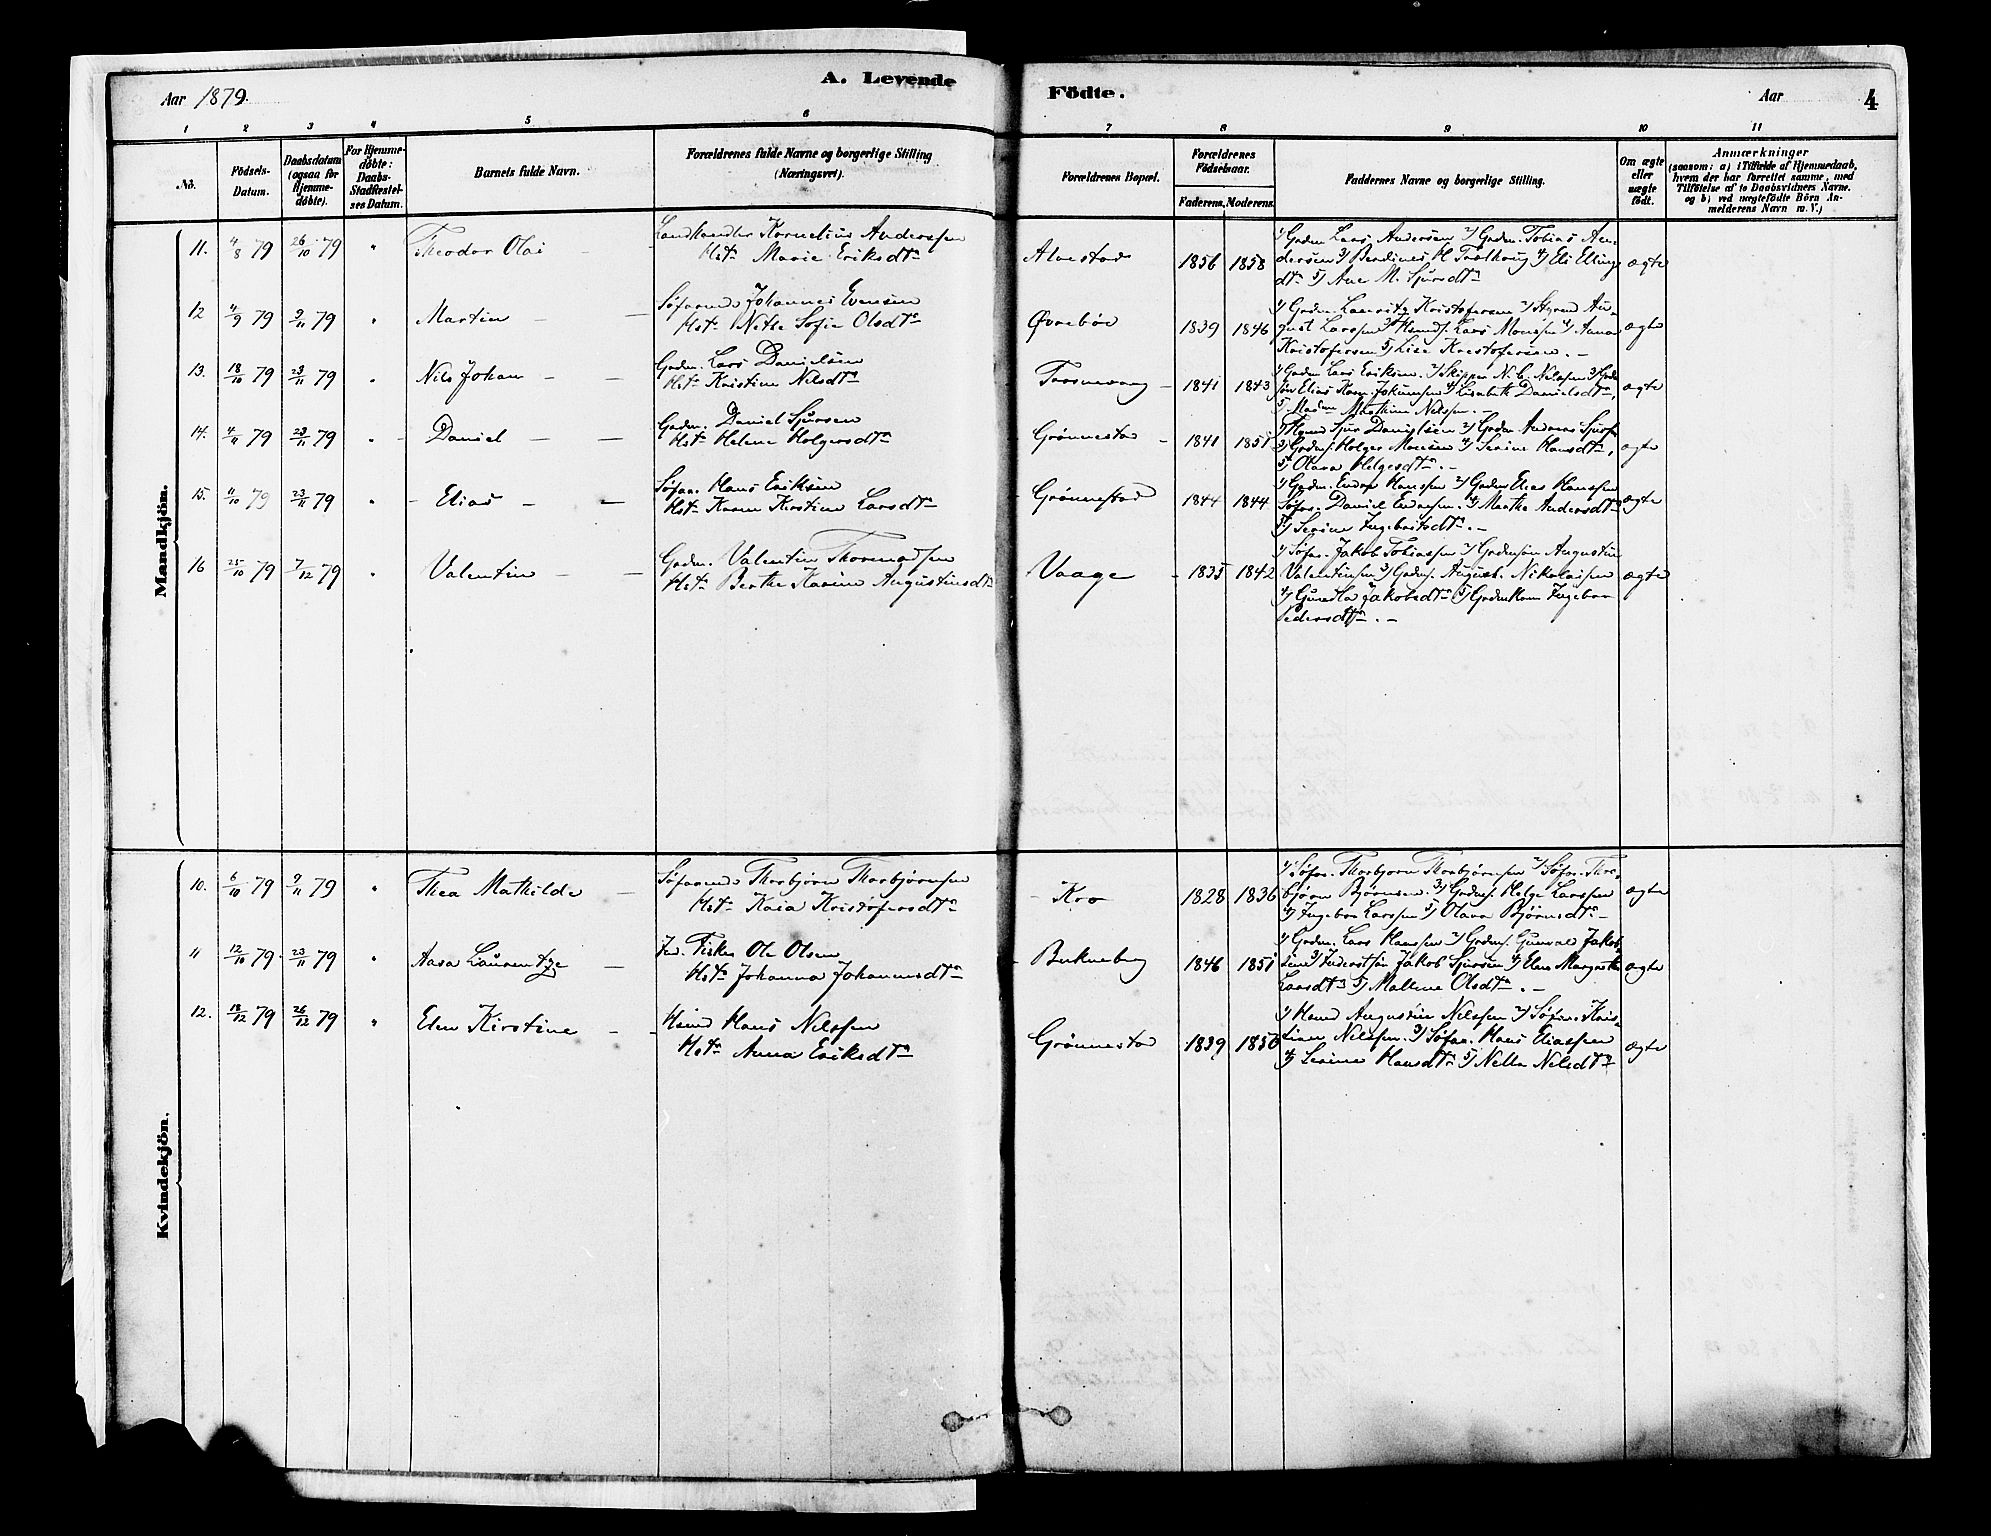 A. Levende
Födte.
Aar 1879.
Aar
4
1 2 3 4 5 6 7 8 9 10 11
No.
Födsels-Datum.
Daabsdatum (ogsaa for Hjemme-döbte).
For Hjemme-döbte: Daabs-Stadfæstel-ses Datum.
Barnets fulde Navn.
Forældrenes fulde Navne og borgerlige Stilling (Næringsvei).
Forældrenes Bopæl.
Forældrenes Födselsaar.
Faderens. Moderens.
Faddernes Navne og borgerlige Stilling.
Om ægte eller uægte födt.
Anmærkninger
(saasom: a) i Tilfælde af Hjemmedaab,
hvem der har forrettet samme, med
Tilföielse af to Daabsvidners Navne.
og b) ved uægtefödte Börn An-
melderens Navn m. V.)
Mandkjön.
11. 4/8 79 26/10 79 " Theodor Olai
Landhandler Kornelius Anderssen
Hst. Marie Eriksdtr
Alvestad 1856 1858
1) Gaardm. Lars Andersen 2) Gaardm. Tobias An-
dersen 3) Berdines H 4) Eli Elling
dtr 5) Ane M. Sjursdtr
ægte
12 4/9 79 9/11 79 " Martin
Søfarende Johannes Evensen
Hst. Nethe Sofie Olsdtr
Øvrebøe 1839 1846
1) Gaardm. Lauritz Kristofersen 2) Styrmd Au-
gust Larssen 3) Husmd. Lars Monssen 4) Anna
Kristofersen 5) Lise Kristofersen. —
ægte
13. 18/10 79 23/11 79 " Nils Johan
Gaardm. Lars Danielsen
Hst. Kristine Nilsdtr
1841 1843
1) Gaardm Lars Eriksen. 2) Skipper N. C. Nilssen 3)
Elias Jokumsen 4) Lisabeth Danielsdtr,
5) Madm Mathine Nilssen. —
ægte
14. 4/11 79 23/11 79 " Daniel
Gaardm. Daniel Sjursen
Hst. Helene Holgersdtr
Grönnestad 1841 1851
1) Sjur Danielsen 2) Gaardm Andreas Sjurs.
3) Holger Monsen 4) Serine Hansdtr,
5) Olava Helgesdtr. —
ægte
15. 4/10 79 23/11 79 " Elias
Søfar. Hans Eriksen
Hst. Karen Kirstine Larsdtr
Grönnestad 1844 1844
1) Gaardm. Endre Hanssen 2) Gaardm Elias Hanssen
Søfar. Daniel Endresen. 4) Marthe Andersdtr
5) Serine Ingebritsdtr. —
ægte
16 25/10 79 7/12 79 " Valentin
Gaardm. Valentin Thormodsen
Hst. Berthe Karine Augustinusdtr
Vaage 1835 1842
1) Søfar. Jakob Tobiassen 2) Augustin
Valentinsen 3) August. Nikolaisen
4) Gunilla Jakobsdtr 5) Ingebor
Pedersdtr. —
ægte
Kvindekjön.
10. 6/10 79 9/11 79 " Thea Mathilde
Søfarende Thorbjørn Thorbjørnsen
Hst. Kaia Kristofersdtr
Kro 1828 1836
1) Søfar. Thorbjorn Thorbjørnsen 2) Søfar. Thor-
bjørn Bjørnsen. 3) Helge Larssen
4) Ingebor Larssen 5) Olava Bjørnsdtr —
ægte
11 12/10 79 23/11 79 " Aasa Laurentze
Ind. Fisker Ole Olsen
Hst. Johanna Johannesdtr
Bukneberg 1846 1851
1) Gaardm. Lars Hanssen 2) Gunvald Jakob-
sen 3) Jakob Sjursen 4) Elen Margrethe
Larsdtr 5) Mallene Olsdtr. —
ægte
12. 18/12 79 26/12 79 " Elen Kirstine
Husmd Hans Nilssen
Hst. Anna Eriksdtr
Grönnestad 1839 1850
1) Husmd Augustin Nilssen 2) Søfar. Kris-
tian Nilssen. 3) Søfar. Hans Eliassen
4) Serine Hansdtr 5) Nella Nilsdtr
ægte